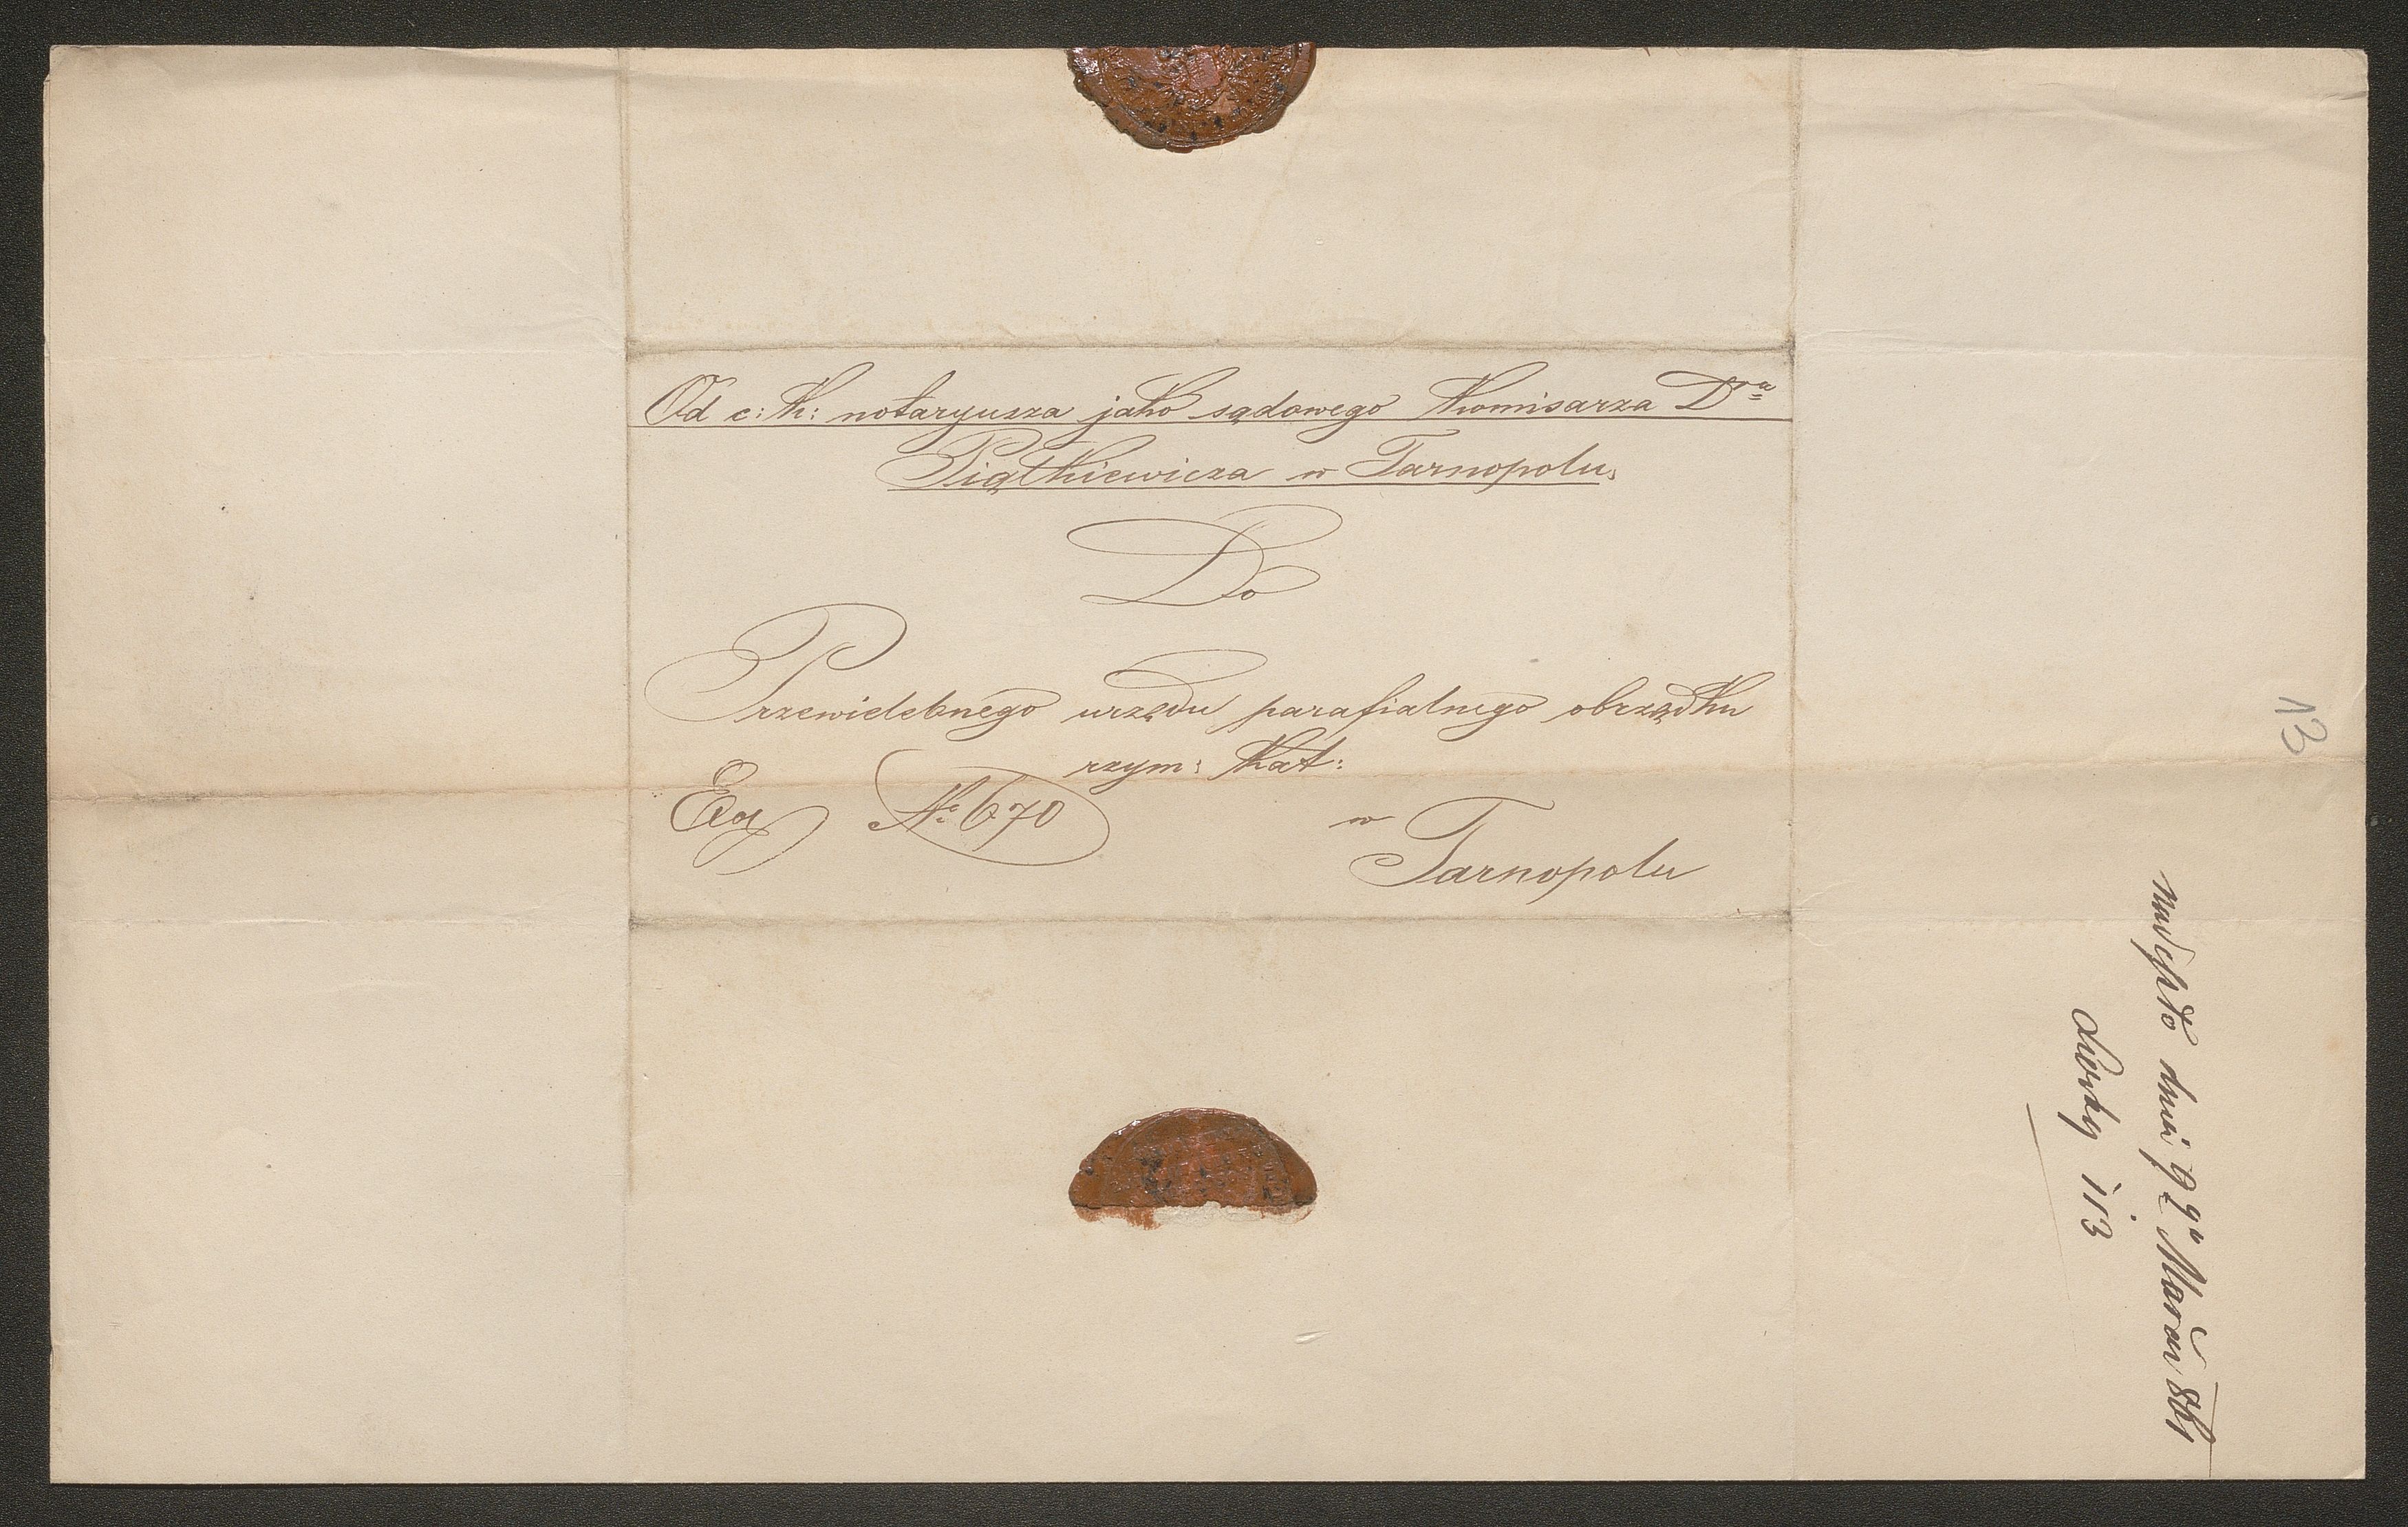 Od c: k: notaryusza jako sądowego komisarza Dra
Piątkiewicza w Tarnopolu.
Do
Przewielebnego urzędu parafialnego obrządku
rzym: kat:
Ex No 670
w
Tarnopolu
13
nadeszło dnia Marca
Liczby 113